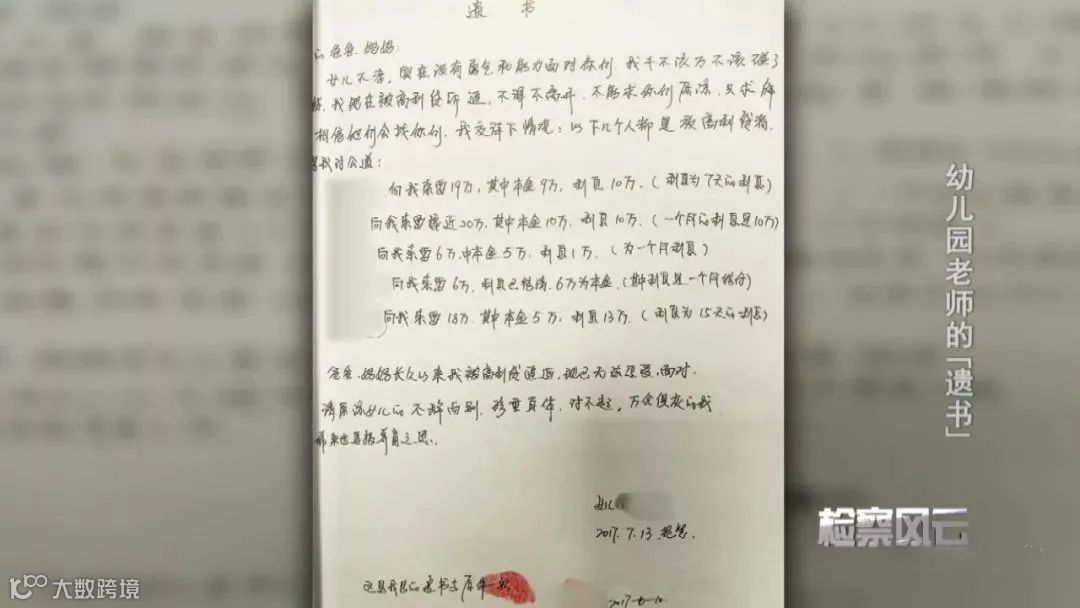 遗 书
爸爸、妈妈:
女儿不孝,现在没有勇气和能力面对你们,我千不该万不该碰了
我现在被高利贷所逼,不得不离开,不能求你们原谅,只求
相信他们会找你们,我交待下情况:以下几个人都是放高利贷者,
我讨公道:
向我索要19万,其中本金9万,利息10万.(利息为7天的利息)
向我索要接近20万,其中本金10万,利息10万.(一个月的利息是10万)
向我索要6万,中本金5万,利息1万.(为一个月利息)
向我索要6万,利息已结清,6万为本金.(其中利息是一个月结付)
向我索要18万,其中本金5万,利息13万.(利息为15天的利息)
爸爸、妈妈长久以来我被高利贷追逼,现已无法承受、面对.
请原谅女儿的不辞而别,珍重身体,对不起,万念俱灰的我
来世再报养育之恩.
女儿
2017.7.13.绝笔
这是我的遗书与原件一致
2017-
幼儿园老师的「遗书」
检察风云
大数跨境